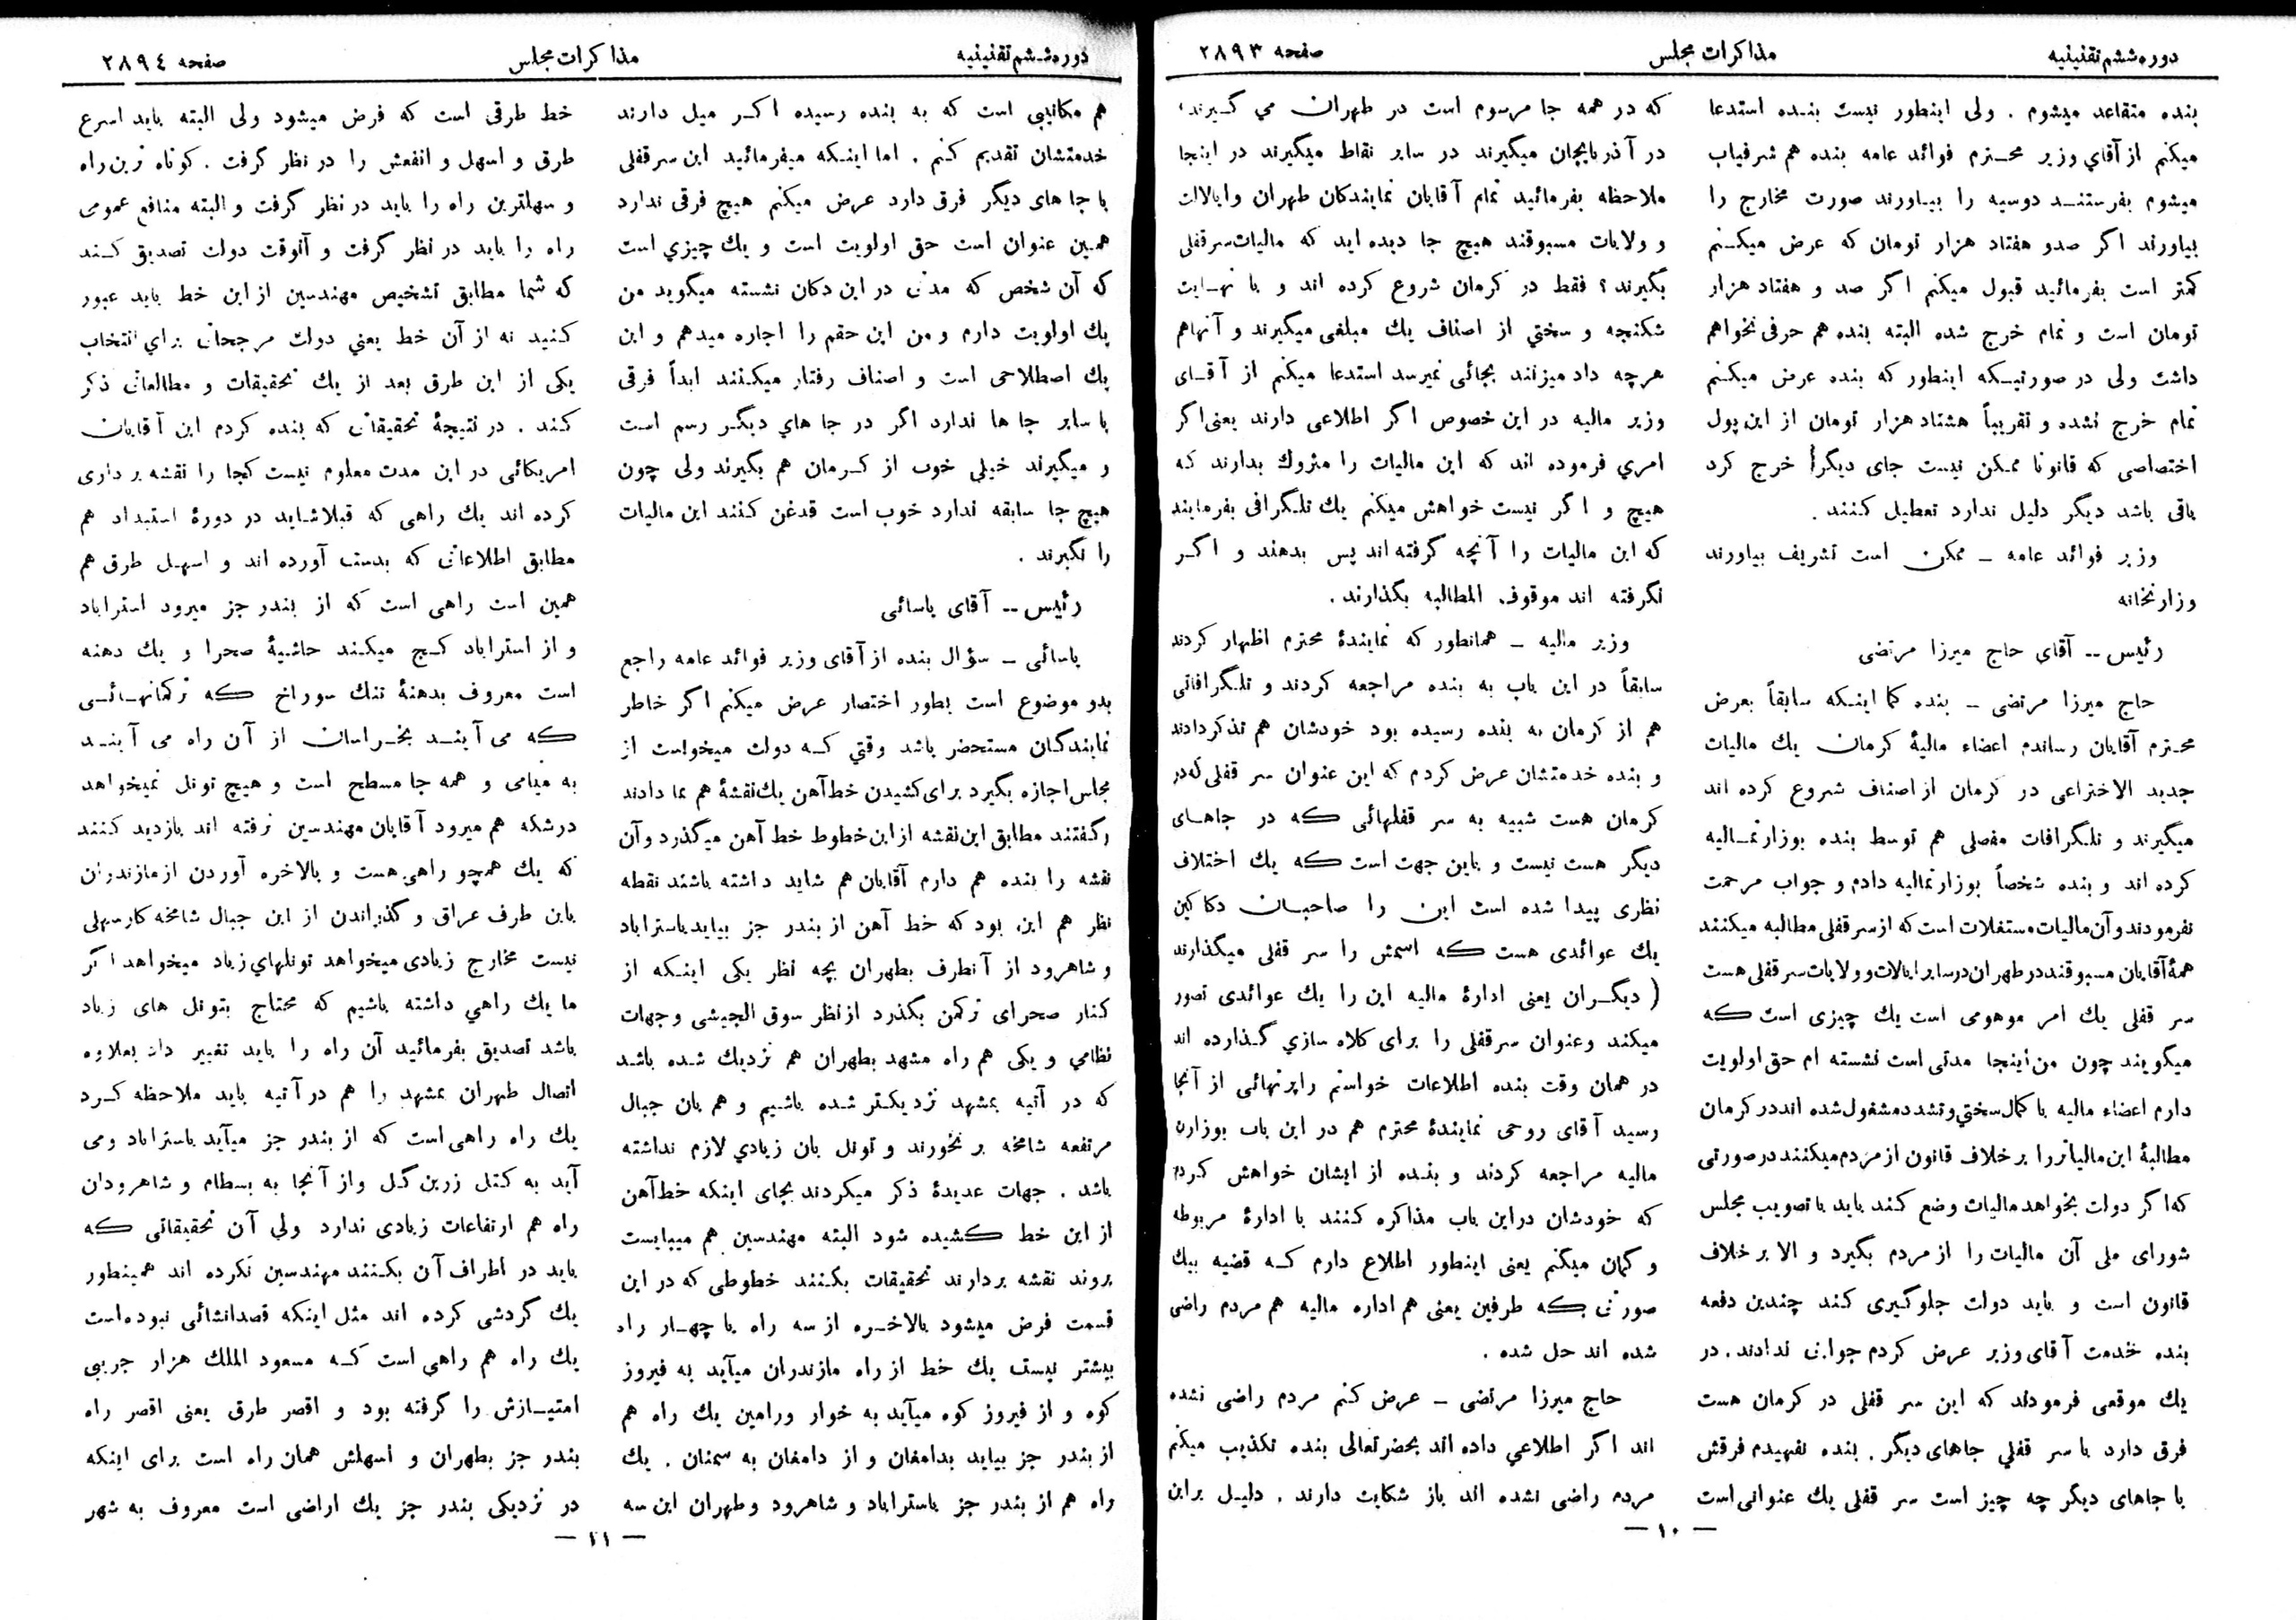 دوره ششم تقنینیه مذاکرات مجلس صفحه ۲۸۹۳
بنده متقاعد میشوم . ولی اینطور نیست بنده استدعا
میکنم از آقاي وزیر محترم فوائد عامه بنده هم شرفیاب
میشوم بفرستند دوسیه را بیاورند صورت مخارج را
بیاورند اگر صدو هفتاد هزار تومان که عرض میکنم
کمتر است بفرمائید قبول میکنم اگر صد و هفتاد هزار
تومان است و تمام خرج شده البته بنده هم حرفی نخواهم
داشت ولی در صورتیکه اینطور که بنده عرض میکنم
تمام خرج نشده و تقریباً هشتاد هزار تومان از این پول
اختصاصی که قانونا ممکن نیست جای دیگر خرج کرد
باقی باشد دیگر دلیل ندارد تعطیل کنند .
وزیر فوائد عامه ـ ممکن است تشریف بیاورند
وزارتخانه
رئیس -- آقای حاج میرزا مرتضی
حاج میرزا مرتضی ـ بنده کما اینکه سابقاً بعرض
محترم آقایان رساندم اعضاء مالیهٔ کرمان یك مالیات
جدید الاختراعی در کرمان از اصناف شروع کرده اند
میگیرند و تلگرافات مفصلی هم توسط بنده بوزارتمالیه
کرده اند و بنده شخصاً بوزارتمالیه دادم و جواب مرحمت
نفرمودند و آن مالیات مستغلات است که از سرقفلی مطالبه میکنند
همهٔ آقایان مسبوقند در طهران در سایر ایالات و ولایات سرقفلی هست
سر قفلی یك امر موهومی است یك چیزی است که
میگویند چون من اینجا مدتی است نشسته ام حق اولویت
دارم اعضاء مالیه با کمال سختي و تشدد مشغول شده اند در کرمان
مطالبهٔ این مالیاترا بر خلاف قانون از مردم میکنند در صورتی
که اگر دولت بخواهد مالیات وضع کند باید با تصویب مجلس
شورای ملی آن مالیات را از مردم بگیرد و الا بر خلاف
قانون است و باید دولت جلوگیری کند چندین دفعه
بنده خدمت آقای وزیر عرض کردم جوابی ندادند . در
یك موقعی فرمودند که این سر قفلی در کرمان هست
فرق دارد با سر قفلي جاهای دیگر . بنده نفهیدم فرقش
با جاهای دیگر چه چیز است سر قفلی یك عنوانی است
که در همه جا مرسوم است در طهران می گیرند ،
در آذربایجان میگیرند در سایر نقاط میگیرند در اینجا
ملاحظه بفرمائید تمام آقایان نمایندگان طهران و ایالات
و ولایات مسبوقند هیچ جا دیده اید که مالیات سرقفلی
بگیرند ؟ فقط در کرمان شروع کرده اند و با نهایت
شکنجه و سختي از اصناف یك مبلغی میگیرند و آنهاهم
هرچه داد میزنند بجائی نمیرسد استدعا میکنم از آقای
وزیر مالیه در این خصوص اگر اطلاعی دارند یعنی اگر
امري فرموده اند که این مالیات را متروك بدارند که
هیچ و اگر نیست خواهش میکنم یك تلگرافی بفرمایند
که این مالیات را آنچه گرفته اند پس بدهند و اگر
نگرفته اند موقوف المطالبه بگذارند .
وزیر مالیه ـ همانطور که نمایندهٔ محترم اظهار کردند
سابقاً در این باب به بنده مراجعه کردند و تلگرافاتی
هم از کرمان به بنده رسیده بود خودشان هم تذکر دادند
و بنده خدمتشان عرض کردم که این عنوان سر قفلی که در
کرمان هست شبیه به سر قفلهائی که در جاهای
دیگر هست نیست و باین جهت است که یك اختلاف
نظری پیدا شده است این را صاحبان دکاکین
یك عوائدی هست که اسمش را سر قفلی میگذارند
( دیگران یعنی ادارهٔ مالیه این را یك عوائدی تصور
میکند و عنوان سرقفلی را برای کلاه سازي گذارده اند
در همان وقت بنده اطلاعات خواستم راپرتهائی از آنجا
رسید آقای روحی نمایندهٔ محترم هم در این باب بوزارت
مالیه مراجعه کردند و بنده از ایشان خواهش کردم
که خودشان در این باب مذاکره کنند با ادارهٔ مربوطه
و گمان میکنم یعنی اینطور اطلاع دارم که قضیه بیك
صورتی که طرفین یعنی هم اداره مالیه هم مردم راضی
شده اند حل شده .
حاج میرزا مرتضی ـ عرض کنم مردم راضی نشده
اند اگر اطلاعي داده اند بحضرتعالی بنده تکذیب میکنم
مردم راضی نشده اند باز شکایت دارند . دلیل براین
— ۱۰ —
دوره ششم تقنینیه مذاکرات مجلس صفحه ۲۸۹٤
هم مکاتیبی است که به بنده رسیده اگر میل دارند
خدمتشان تقدیم کنم . اما اینکه میفرمائید این سرقفلی
با جاهای دیگر فرق دارد عرض میکنم هیچ فرقی ندارد
همین عنوان است حق اولویت است و یك چیزي است
که آن شخص که مدتی در این دکان نشسته میگوید من
یك اولویت دارم و من این حقم را اجاره میدهم و این
یك اصطلاحی است و اصناف رفتار میکنند ابداً فرقی
با سایر جاها ندارد اگر در جا هاي دیگر رسم است
و میگیرند خیلی خوب از کرمان هم بگیرند ولی چون
هیچ جا سابقه ندارد خوب است قدغن کنند این مالیات
را نگیرند .
رئیس -- آقای یاسائی
یاسائی ـ سؤال بنده از آقای وزیر فوائد عامه راجع
بدو موضوع است بطور اختصار عرض میکنم اگر خاطر
نمایندگان مستحضر باشد وقتي که دولت میخواست از
مجلس اجازه بگیرد برای کشیدن خط آهن یك نقشهٔ هم بما دادند
و گفتند مطابق این نقشه از این خطوط خط آهن میگذرد و آن
نقشه را بنده هم دارم آقایان هم شاید داشته باشند نقطه
نظر هم این بود که خط آهن از بندر جز بیاید باستراباد
و شاهرود از آنطرف بطهران بچه نظر یکی اینکه از
کنار صحرای ترکمن بگذرد از نظر سوق الجیشی و جهات
نظامي و یکی هم راه مشهد بطهران هم نزدیك شده باشد
که در آتیه بمشهد نزدیکتر شده باشیم و هم بان جبال
مرتفعه شامخه بر نخورند و تونل بان زیادي لازم نداشته
باشد . جهات عدیدهٔ ذکر میکردند بجای اینکه خط آهن
از این خط کشیده شود البته مهندسین هم میبایست
بروند نقشه بردارند تحقیقات بکنند خطوطی که در این
قسمت فرض میشود بالاخره از سه راه یا چهار راه
بیشتر نیست یك خط از راه مازندران میآید به فیروز
کوه و از فیروز کوه میآید به خوار ورامین یك راه هم
از بندر جز بیاید بدامغان و از دامغان به سمنان . یك
راه هم از بندر جز باستراباد و شاهرود وطهران این سه
خط طرقی است که فرض میشود ولی البته باید اسرع
طرق و اسهل و انفعش را در نظر گرفت . کوتاه ترین راه
و سهلترین راه را باید در نظر گرفت و البته منافع عمومی
راه را باید در نظر گرفت و آنوقت دولت تصدیق کند
که شما مطابق تشخیص مهندسین از این خط باید عبور
کنید نه از آن خط یعني دولت مرجحاتی براي انتخاب
یکی از این طرق بعد از یك تحقیقات و مطالعاتی ذکر
کند . در نتیجهٔ تحقیقاتی که بنده کردم این آقایان
امریکائی در این مدت معلوم نیست کجا را نقشه برداری
کرده اند یك راهی که قبلا شاید در دورهٔ استبداد هم
مطابق اطلاعاتی که بدست آورده اند و اسهل طرق هم
همین است راهی است که از بندر جز میرود استراباد
و از استراباد کج میکند حاشیهٔ صحرا و یك دهنه
است معروف بدهنهٔ تنك سوراخ که ترکمانهائی
که می آیند بخراسان از آن راه می آیند
به میامی و همه جا مسطح است و هیچ تونل نمیخواهد
درشکه هم میرود آقایان مهندسین نرفته اند بازدید کنند
که یك همچو راهی هست و بالاخره آوردن از مازندران
باین طرف عراق و گذراندن از این جبال شامخه کار سهلی
نیست مخارج زیادی میخواهد تونلهاي زیاد میخواهد اگر
ما یك راهي داشته باشیم که محتاج بتونل های زیاد
باشد تصدیق بفرمائید آن راه را باید تغییر داد بعلاوه
اتصال طهران بمشهد را هم در آتیه باید ملاحظه کرد
یك راه راهی است که از بندر جز میآید باستراباد ومی
آید به کتل زرین گل و از آنجا به بسطام و شاهرودان
راه هم ارتفاعات زیادی ندارد ولي آن تحقیقاتی که
باید در اطراف آن بکنند مهندسین نکرده اند همینطور
یك گردشی کرده اند مثل اینکه قصد انشائی نبوده است
یك راه هم راهی است که مسعود الملك هزار جریبی
امتیازش را گرفته بود و اقصر طرق یعنی اقصر راه
بندر جز بطهران و اسهلش همان راه است برای اینکه
در نزدیکی بندر جز یك اراضی است معروف به شهر
— ۱۱ —